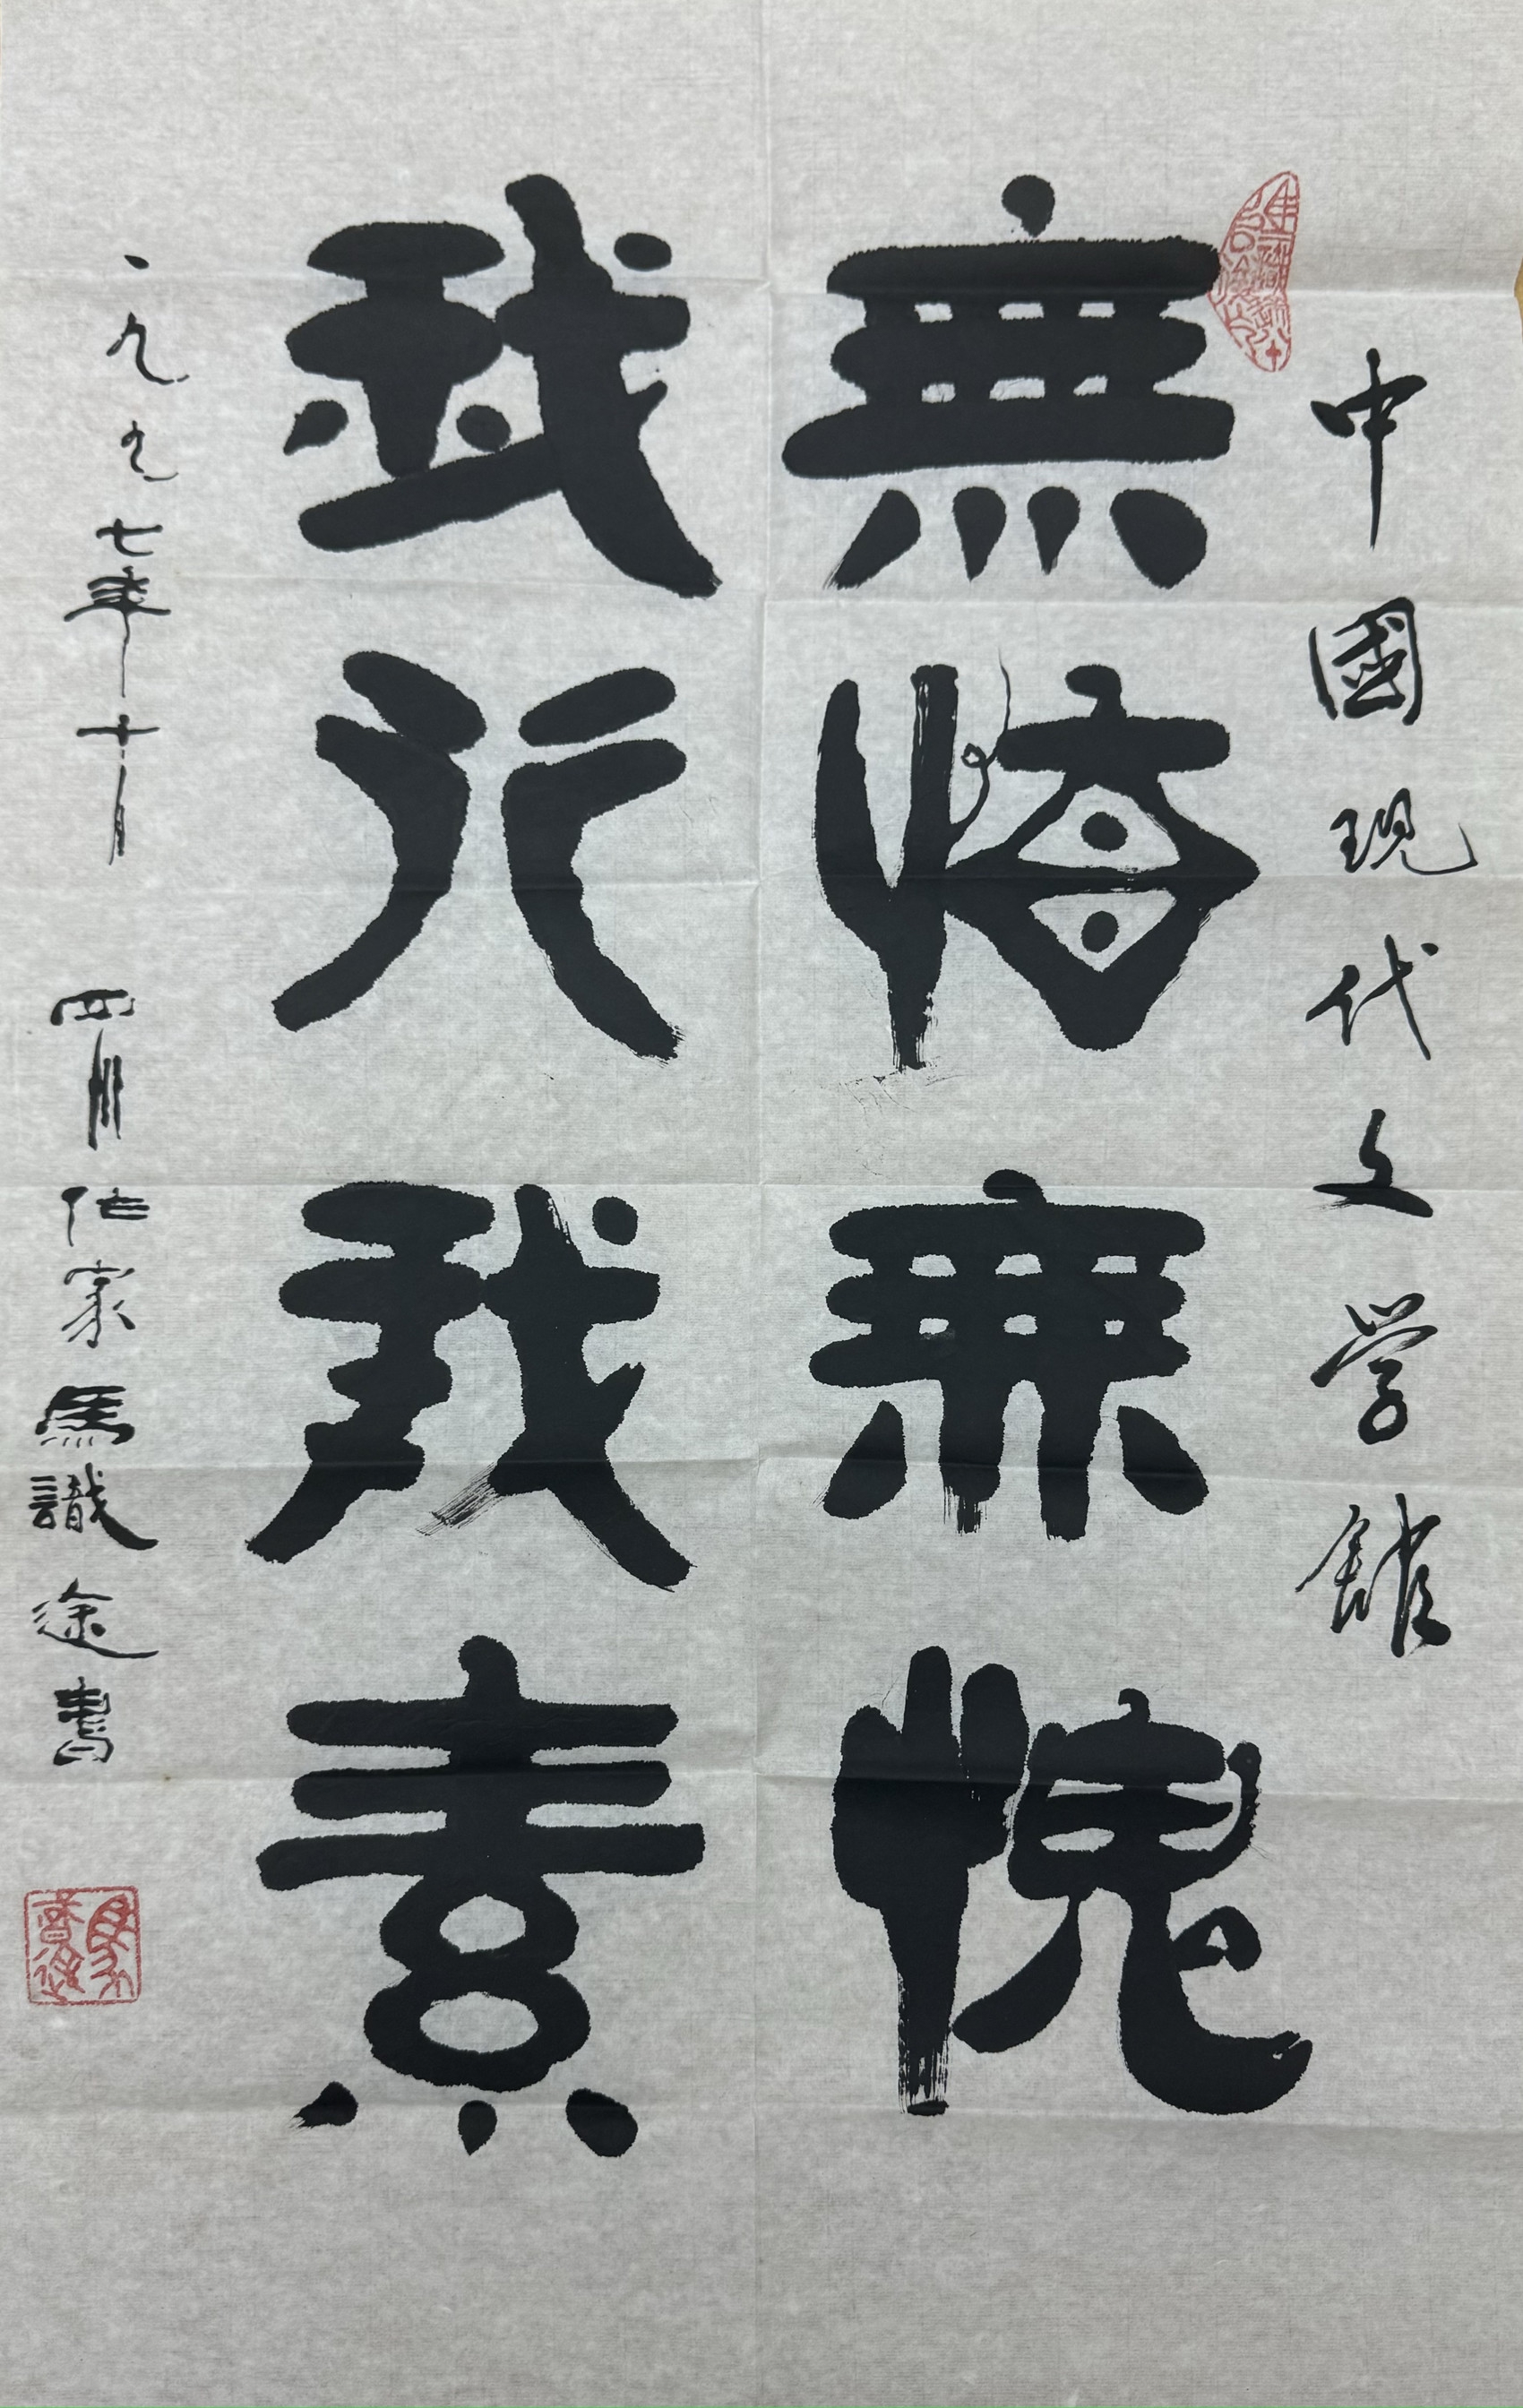 中國現代文学館
無悔無愧
我行我素
一九九七年十月 四川作家馬識途書